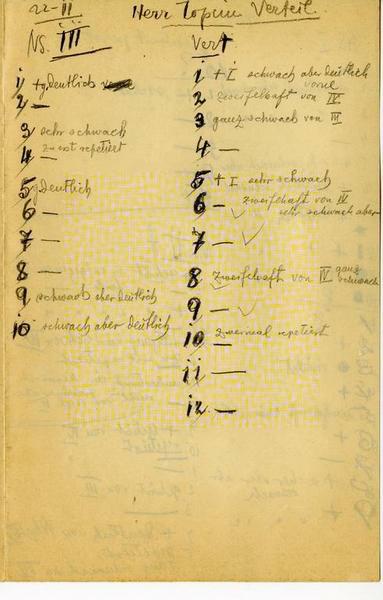 22-II
Herr Topim Verteil.
NS. III
Vert
1 + g deutlich
2 —
3 sehr schwach
4 — zuerst repetiert
5 g deutlich
6 —
7 —
8 —
9 schwach aber deutlich
10 schwach aber deutlich
1 + I schwach aber deutlich
2 zweifelhaft von IV
3 ganz schwach von III
4 —
5 + I sehr schwach
6 — zweifelhaft von IV
sehr schwach aber
7 — ✓
8 zweifelhaft von IV ganz schwach
9 — ✓
10 — zweimal repetiert
11 —
12 —